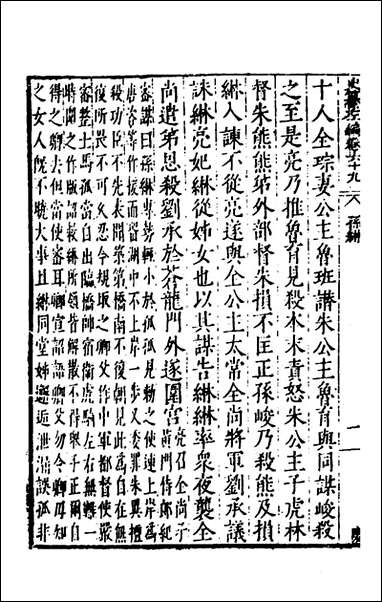 史纂左編卷十九 孫綝 二
十人全琮妻公主魯班譖朱公主魯育與同謀峻殺
之至是亮乃推魯育見殺本末責怒朱公主子虎林
督朱熊熊弟外部督朱損不匡正孫峻乃殺熊及損
綝入諫不從亮遂與全公主太常全尚將軍劉承議
誅綝亮妃綝從姊女也以其謀告綝綝率衆夜襲全
尚遣弟恩殺劉承於蒼龍門外遂圍宮
亮召全尚子
黃門侍郎紀
密謀曰孫綝專勢輕小於孤孤見勑之使速上岸爲
唐咨等作援而留湖中不上岸一步又委罪朱異擅
殺功臣不先表聞築第橋南不復朝見此爲自在無
復所畏不可久忍今規取之卿父作中軍都督使嚴
密整士馬孤當自出臨橋帥宿衛虎騎左右無難一
時圍之作版詔敕綝所領皆解散不得舉手正爾自
得之卿去但當使密耳卿宣詔語卿父勿令卿母知
之女人旣不曉大事且綝同堂姊邂逅泄漏誤孤非